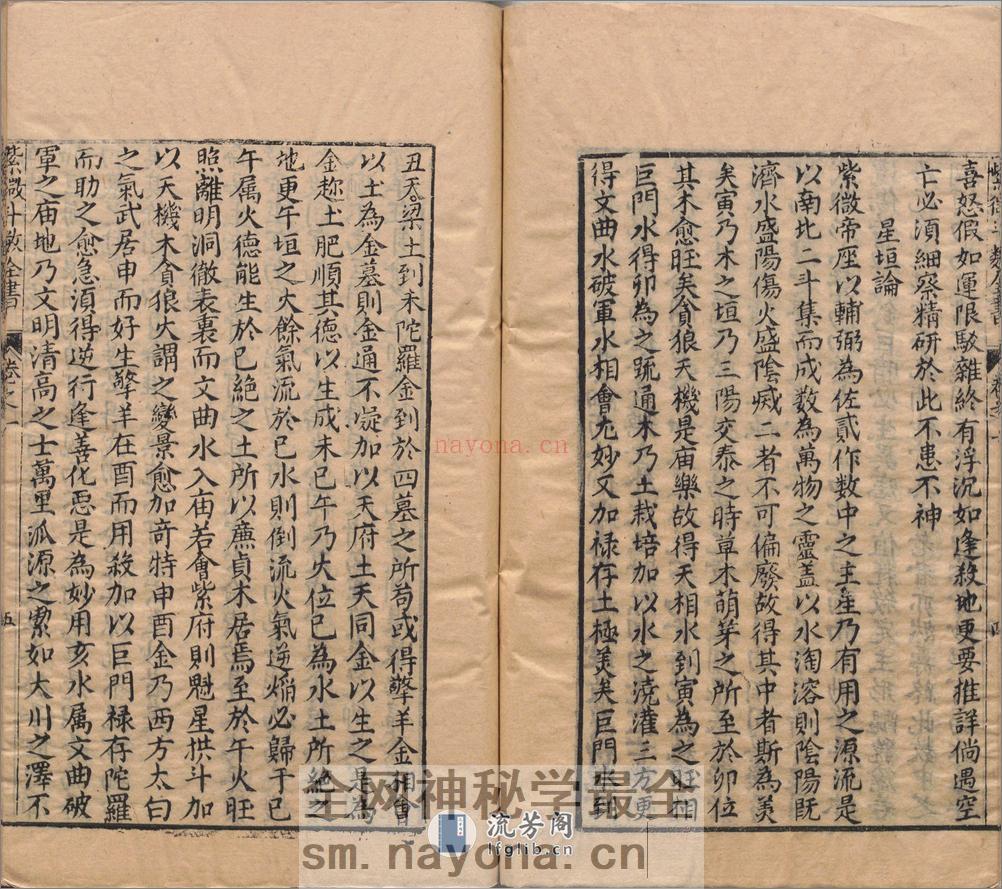 喜怒假如運限駁雜終有浮沉如逢殺地更要推詳倘遇空
亡必須細察精研於此不患不神
星垣論
紫微帝座以輔弼為佐貳作數中之主星乃有用之源流是
以南北二斗集而成数為萬物之靈盖以水淘溶則陰陽既
濟水盛陽傷火盛陰滅二者不可偏廢故得其中者斯為美
矣寅乃木之垣乃三陽交泰之時草木萌芽之所至於卯位
其木愈旺矣貪狼天機是庙樂故得天相水到寅為之旺相
巨門水得卯為之疏通木乃土栽培加以水之澆灌三方更
得文曲水破軍水相會尤妙又加禄存土極美矣巨門水到
丑天梁土到未陀羅金到於四墓之所苟或得擎羊金相會
以土為金墓則金通不凝加以天府土天同金以生之是為
金趂土肥順其德以生成未巳午乃火位巳為水土所絶之
地更午垣之火餘氣流於巳水則倒流火氣逆熖必歸于巳
午属火德能生於巳絶之土所以廉貞木居焉至於午火旺
照離明洞徹表裏而文曲水入庙若會紫府則魁星拱斗加
以天機木貪狼火謂之變景愈加奇特申酉金乃西方太白
之氣武居申而好生擎羊在酉而用殺加以巨門禄存陀羅
而助之愈急須得逆行逢善化惡是為妙用亥水属文曲破
軍之庙地乃文明清高之士萬里派源之潔如大川之澤不
紫微斗數全書
卷之一
五
nayona.cn
全网神秘学最全
sm.nayona.cn
流芳阁
lfglib.cn